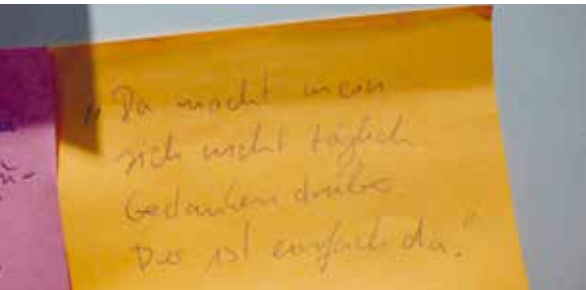 „Da macht man
sich nicht täglich
Gedanken drüber.
Das ist einfach da."